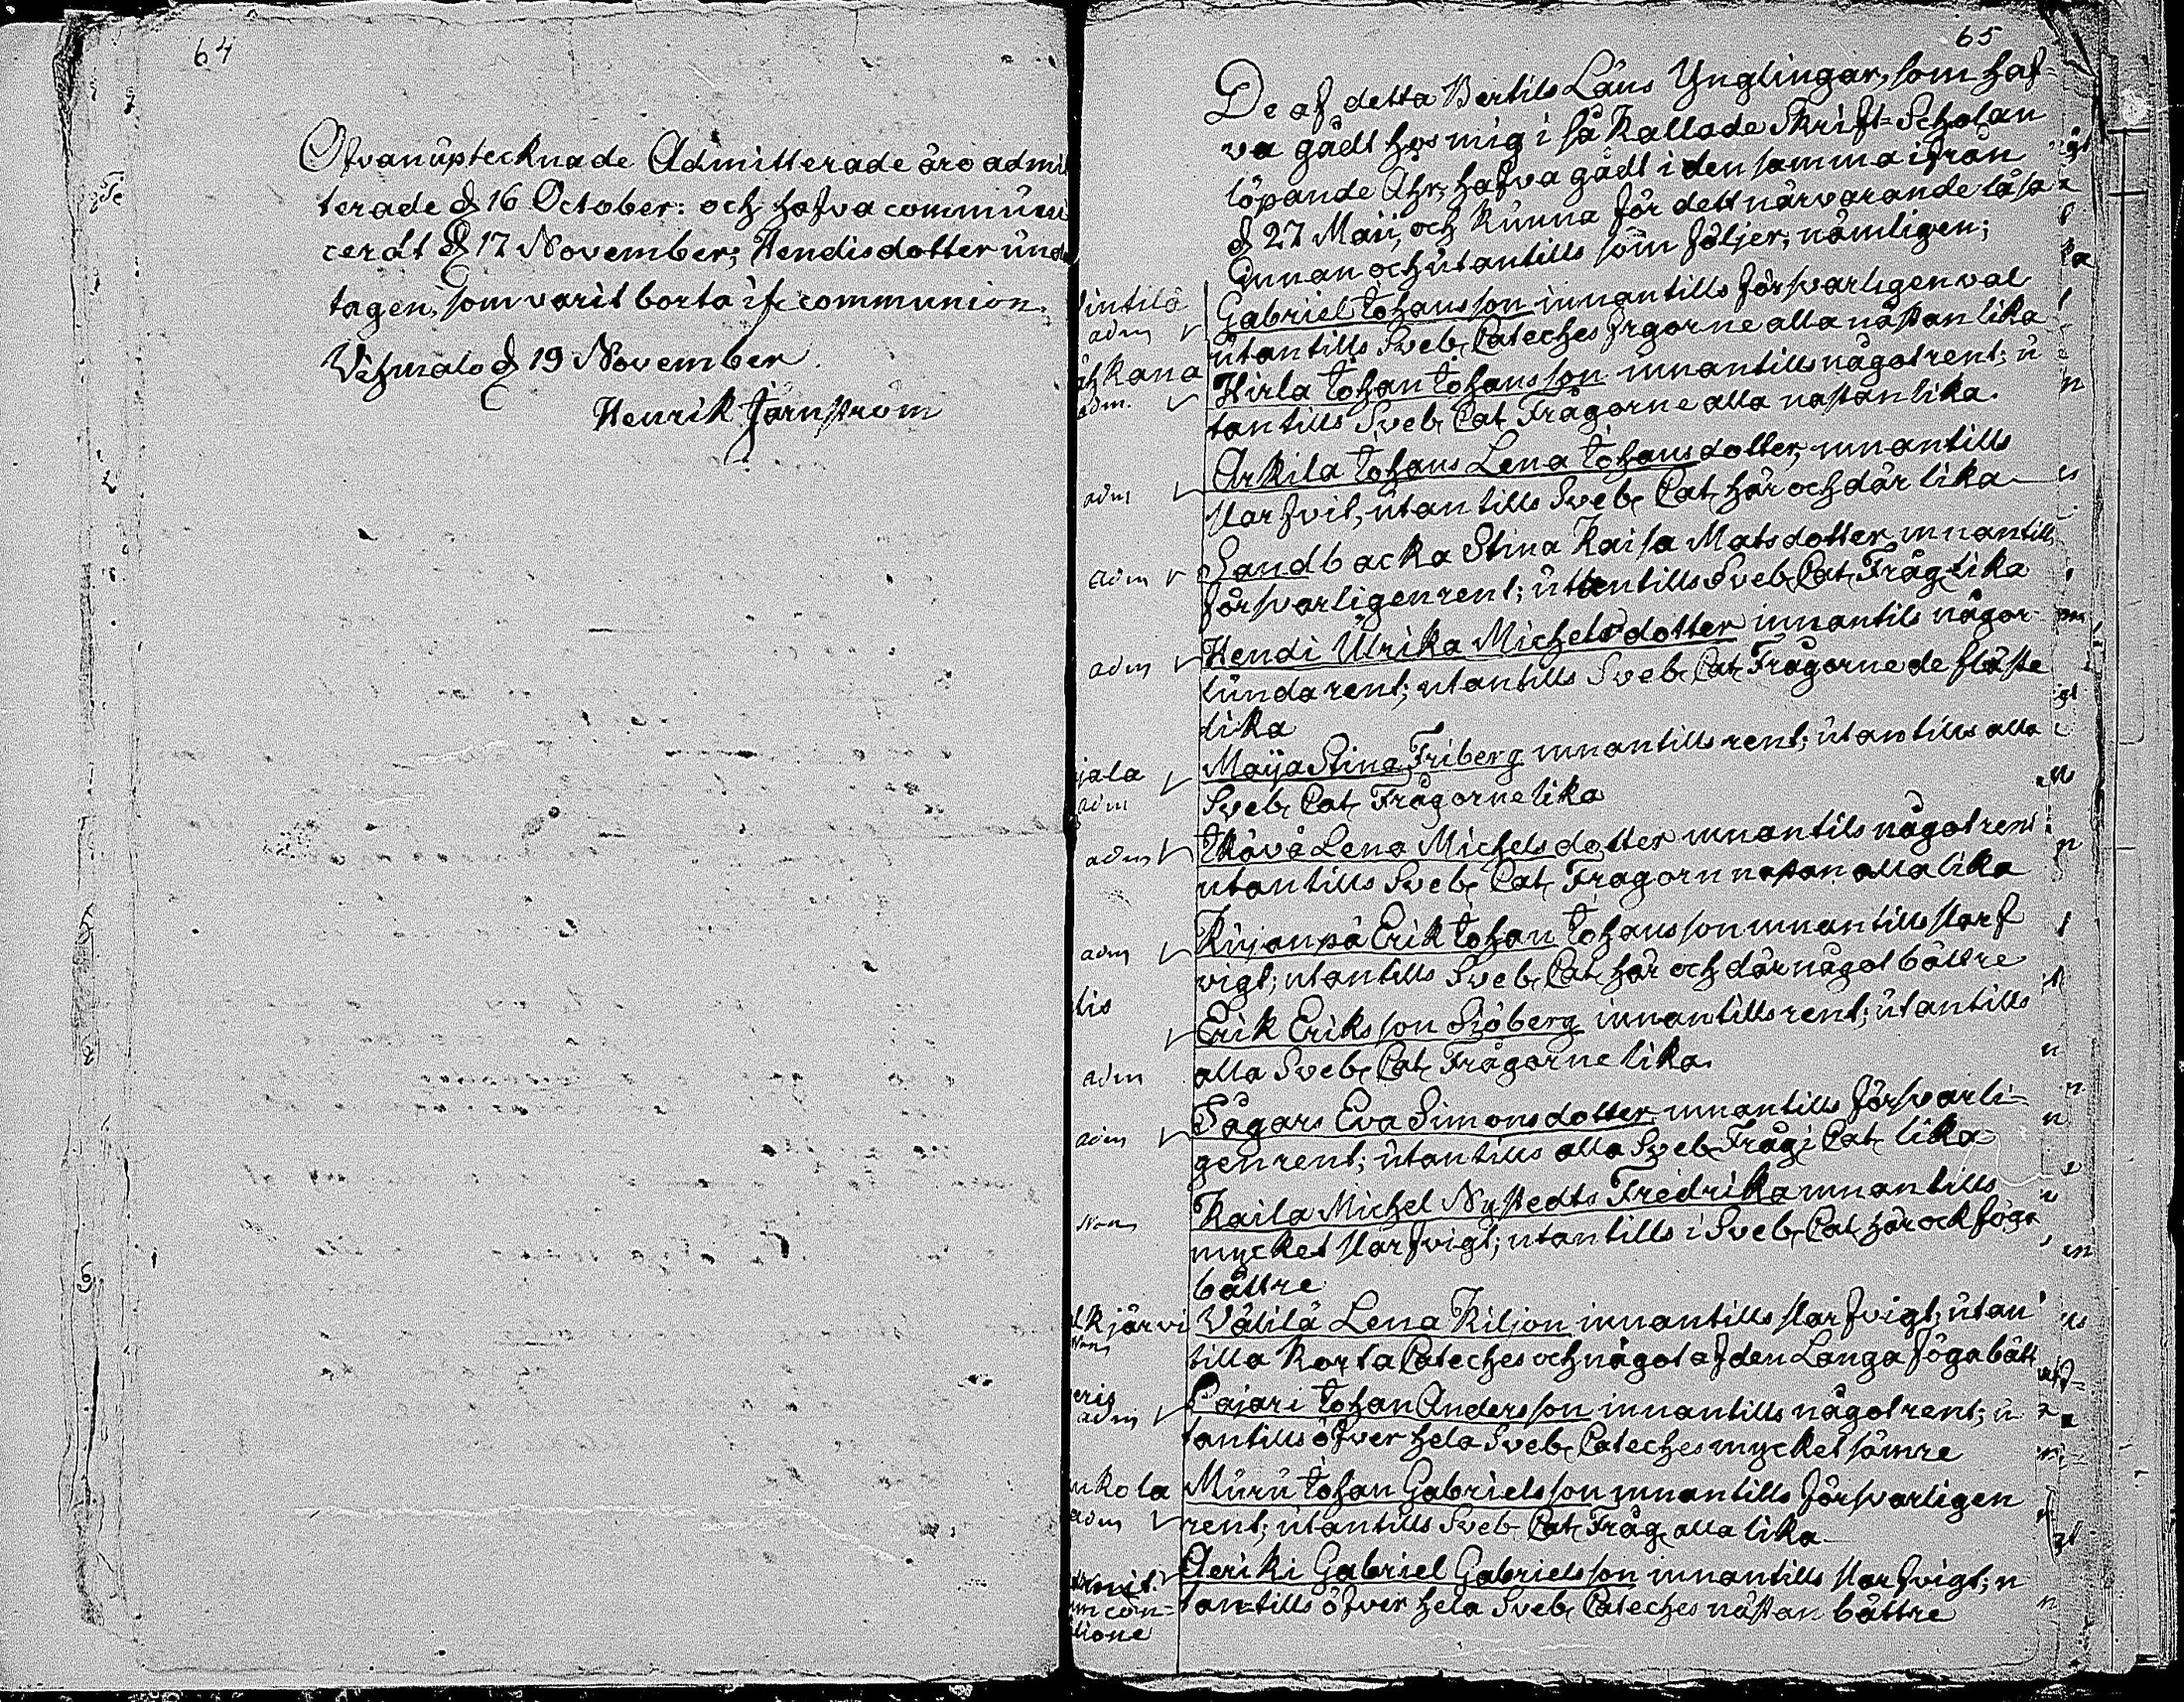 64
Ofvanuptecknade Admitterade äro admit
terade d 16 October: och hafva communi
cerat d 17 November; Hendisdotter und
tagen, som varit borta ifr communion.
Vehmalo d 19 November.
Henrik Järnström
65
De af detta Bertils Läns Ynglingar, som haf-
va gådt hos mig i så kallade Skrift-Scholan
löpande Åhr, hafva gådt i den samma ifrån
d 27 Maii, och kunna för dett närvarande läsa
innan och utantills som följer, nämligen;
intilä
adm Gabriel Johansson innantills försvarligen väl
utantills Sveb. Cateches frgorne alla nästan lika
kana Hirla Johan Johansson innantills något rent; u
adm. tantills Sveb. Cat. Frågorne alla nästan lika.
Arkila Johans Lena Johansdotter, innantills
adm slarfvit, utantills Sveb. Cat. här och där lika
Sandbacka Stina Kaisa Matsdotter innantill
adm försvarligen rent; utantills Sveb. Cat. Fråg. lika
adm Hendi Ulrika Michelsdotter innantils någor-
lunda rent; utantills Sveb. Cat. Frågorne de fläste
lika
jala Maija Stina Friberg innantills rent; utantills alla
adm Sveb. Cat. Frågorne lika
adm Lena Michelsdotter innantils något rent
utantills Sveb. Cat. Fragorn nästan alla lika
adm Kirjanpä Erik Johan Johansson innantills slarf
vigt; utantills Sveb. Cat. här och där något bättre
tis
Erik Eriksson Sjöberg innantills rent; utantills
adm alla Sveb. Cat. Frågorne lika.
adm Sågars Eva Simonsdotter innantills försvarli-
gen rent; utantills alla Sveb. Fråg i Cat. lika
Non Kaila Michel Nystedts Fredrika innantills
mycket slarfvigt; utantills i Sveb. Cat. här ock föga
bättre
kjärvi Välilä Lena Kiljon innantills slarfvigt; utan
Non tilla korta Cateches och något af den Langa föga bätt
eris
adm Pajari Johan Andersson innantills något rent; u
tantills öfver hela Sveb. Cateches mycket sämre
nkola Muru Johan Gabrielsson innantills försvarligen
adm rent; utantills Sveb. Cat. Fråg. alla lika
Aeriki Gabriel Gabrielsson innantills slarfvigt; u
con- tantills öfver hela Sveb. Cateches nästan bättre
tione